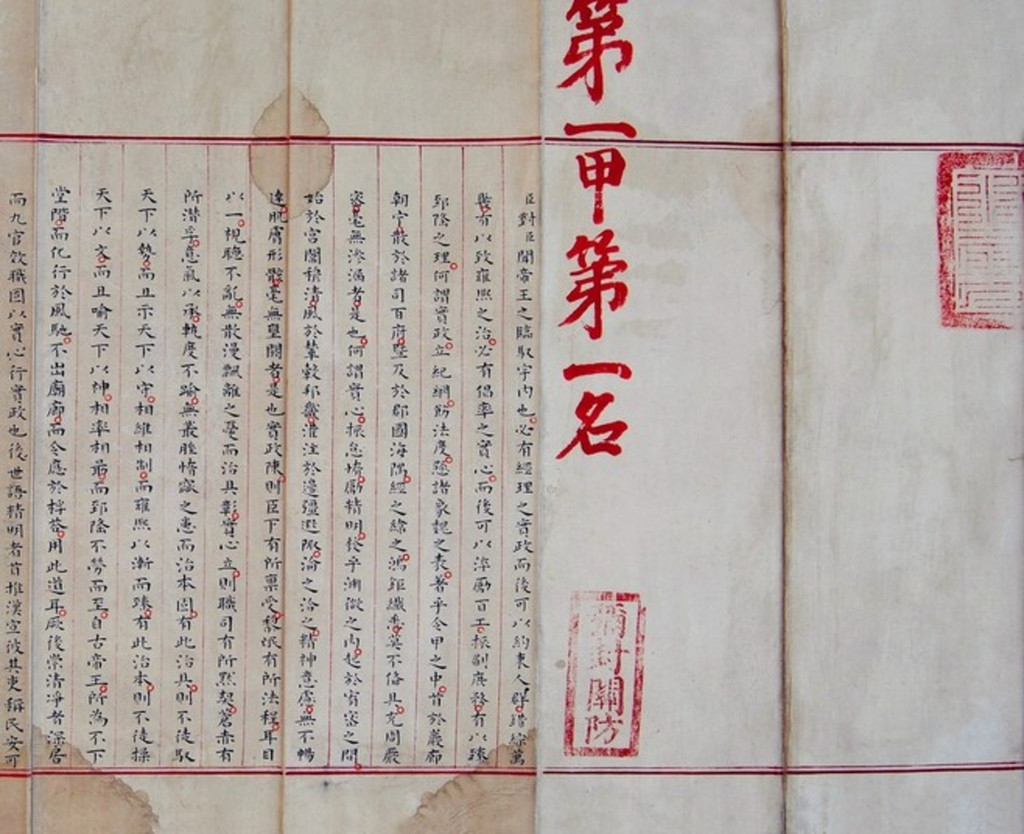 第一甲第一名
彌封關防
臣對臣聞帝王之臨馭宇內也必有經理之實政而後可以約束人群錯綜萬
幾有以致雍熙之治必有倡率之實心而後可以淬勵百工振刷庶務有以臻
郅隆之理何謂實政立紀綱飭法度懸諸象魏之表著乎令甲之中首於巖廊
朝宁散於諸司百府暨及於郡國海隅經之緯之鴻鉅纖悉莫不備具充周嚴
密毫無滲漏者是也何謂實心振怠惰勵精明發乎淵微之內起於宥密之間
始於宮闈穆清風於輦轂邦畿灌注於邊疆遐陬淪之洽之精神意慮無不暢
達肌膚形骸毫無壅閼者是也實政陳則臣下有所稟受黎氓有所法程耳目
以一視聽不亂無散漫飄離之憂而治具彰實心立則職司有所默契蒼赤有
所潛孚意氣以承軌度不踰無叢脞惰窳之患而治本固有此治具則不徒馭
天下以勢而且示天下以守相維相制而雍熙以漸而臻有此治本則不徒操
天下以文而且喻天下以神相率相勗而郅隆不勞而至自古帝王所為不下
堂階而化行於風馳不出廟廊而令應於桴答用此道耳厥後崇清凈者深居
而九官效職固以實心行實政也後世語精明者首推漢宣彼其吏稱民安可